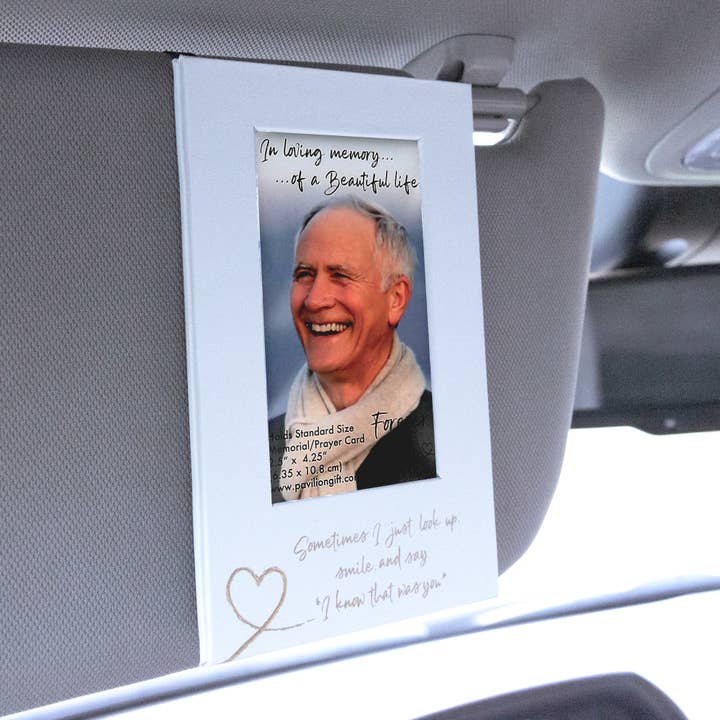 In loving memory...
...of a Beautiful life
Holds Standard Size
Memorial/Prayer Card
2.5" x 4.25"
(6.35 x 10.8 cm)
www.paviliongift.com
Forever
Sometimes I just look up,
smile, and say
"I know that was you"